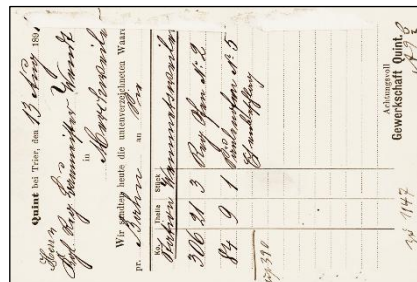 Quint bei Trier, den 13 Aug 189
Herrn
Kgl. Reg. Baumeister Wendt
in
Merchweiler
Wir sandten heute die untenverzeichneten Waaren
pr. Bahn an Sie
Ko. Theile Stück
Station Wemmetsweiler
306 21 3 Reg. Ofen No 2
84 9 1 Säulenofen No 5
390
Achtungsvoll
Gewerkschaft Quint.
1147